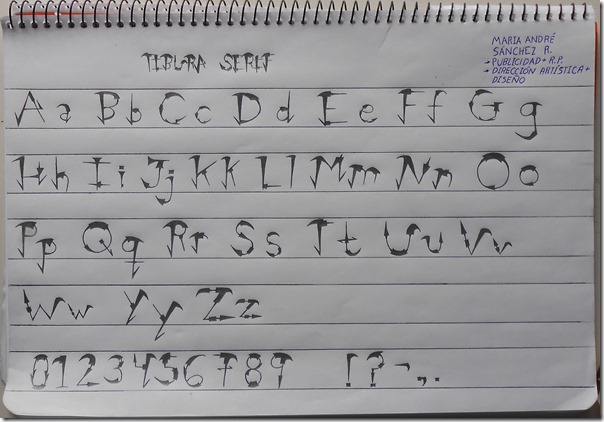 TIBURA SERIF
MARIA ANDRÉ
SÁNCHEZ R.
→ PUBLICIDAD + R.P.
→ DIRECCIÓN ARTÍSTICA +
DISEÑO
A a B b C c D d E e F f G g
H h I i J j K k L l M m N n O o
P p Q q R r S s T t U u V v
W w Y y Z z
0 1 2 3 4 5 6 7 8 9 ! ? - , .